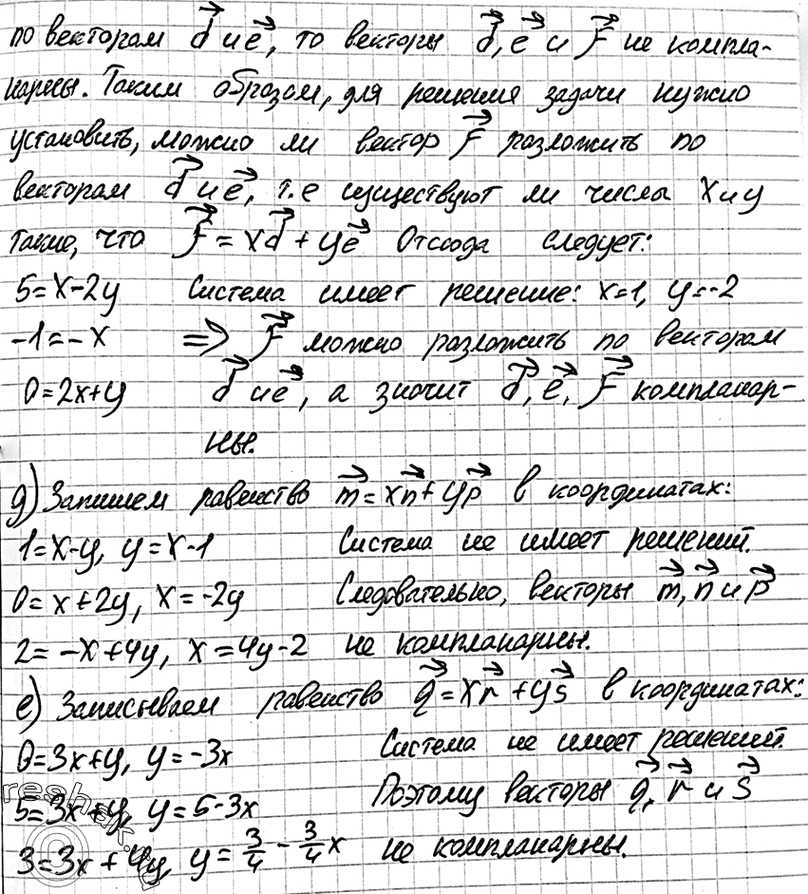 по векторам d⃗ и e⃗, то векторы d⃗, e⃗ и f⃗ не компла-
нарны. Таким образом, для решения задачи нужно
установить, можно ли вектор f⃗ разложить по
векторам d⃗ и e⃗, т.е существуют ли числа x и y
такие, что f⃗ = xd⃗ + ye⃗ Отсюда следует:
5=x-2y Система имеет решение: x=1, y=-2
-1=-x ⇒ f⃗ можно разложить по векторам
0=2x+y d⃗ и e⃗, а значит d⃗, e⃗, f⃗ компланар-
ны.
д) Запишем равенство m⃗=xn⃗+yp⃗ в координатах:
1=x-y, y=x-1 Система не имеет решений.
0=x+2y, x=-2y Следовательно, векторы m⃗, n⃗ и p⃗
2=-x+4y, x=4y-2 не компланарны.
е) Записываем равенство q⃗=xr⃗+ys⃗ в координатах:
0=3x+y, y=-3x Система не имеет решений.
5=3x+y, y=5-3x Поэтому векторы q⃗, r⃗ и s⃗
3=3x+4y, y=3/4-3/4x не компланарны.